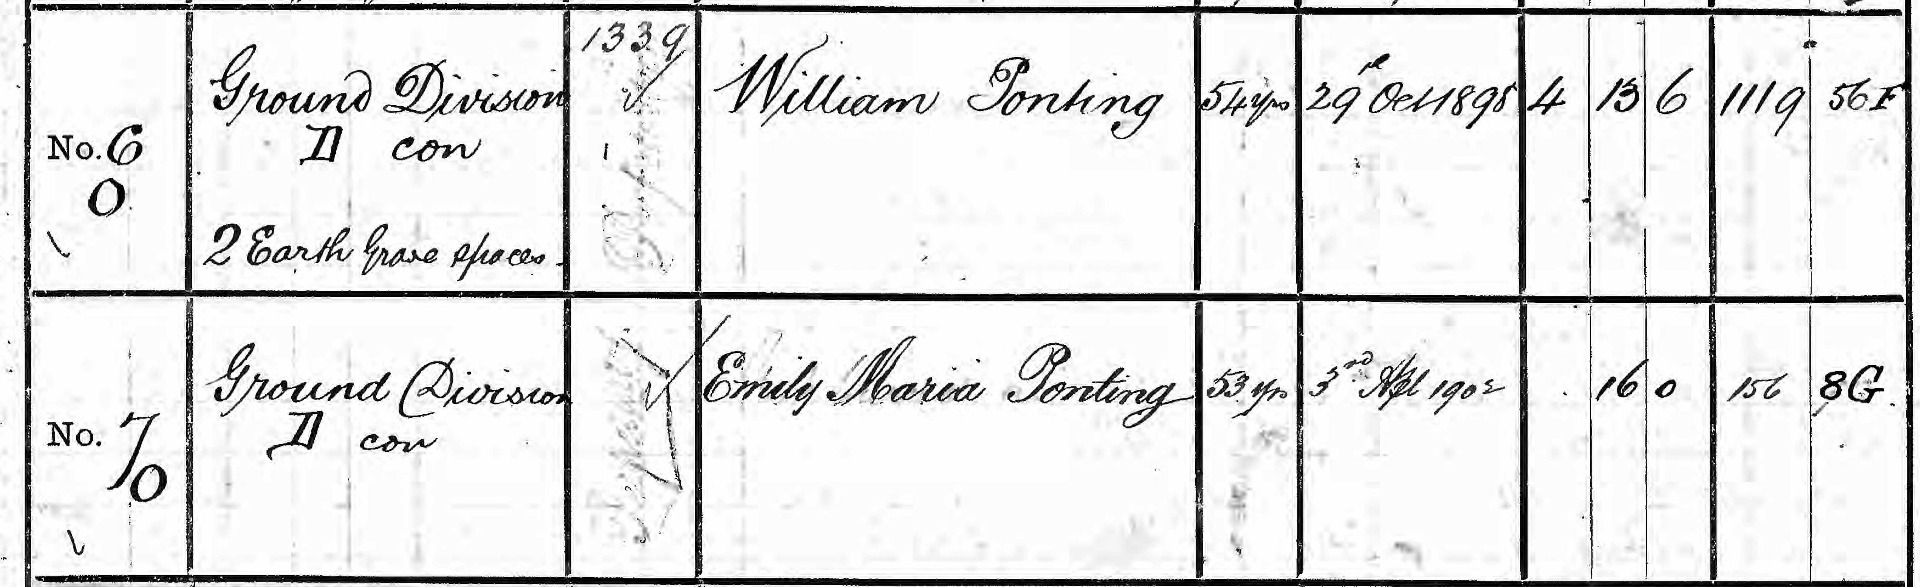 1339
Ground Division William Ponting 54 yrs 29th Oct 1898 4 13 6 1119 56 F
No. 6 D con
0
2 Earth Grave spaces
Ground Division Emily Maria Ponting 53 yrs 3rd Apl 1902 16 0 156 8 G
No. 7 D con
0